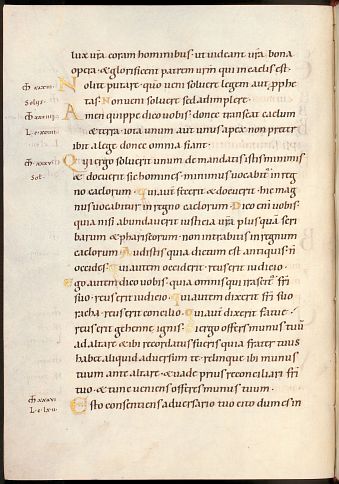 lux ur̃a coram hominibus · ut uideant ur̃a bona
opera · & glorificent patrem ur̃m qui in caelis est ·
Nolite putare quo ueni soluere legem aut pphe
tas · Non ueni soluere sed adimplere ·
Amen quippe dico uobis · donec transeat caelum
& terra · iota unum aut unus apex non preter
ibit a lege donec omnia fiant ·
Qui ergo soluerit unum de mandatis istis minimis
& docuerit sic homines · minimus uocabit in reg
no caelorum · Qui aut fecerit & docuerit · hic mag
nus uocabitur in regno caelorum · Dico eni uobis ·
quia nisi abundauerit iusticia ur̃a plus quã scri
barum & phariseorum · non intrabitis in regnum
caelorum · Audistis quia dictum est antiquis · ñ
occides · Qui autem occiderit · reus erit iudicio ·
Ego autem dico uobis · quia omis qui irascit fri
suo · reus erit iudicio · Qui autem dixerit fri suo
racha · reus erit concilio · Qui aut dixerit fatue ·
reus erit gehenne ignis · Si ergo offers munus tuũ
ad altare · & ibi recordatus fueris quia frater tuus
habet aliquid aduersum te · relinque ibi munus
tuum ante altare · & uade prius reconciliari fri
tuo · & tunc ueniens offeres munus tuum ·
Esto consentiens aduersario tuo cito dum es in